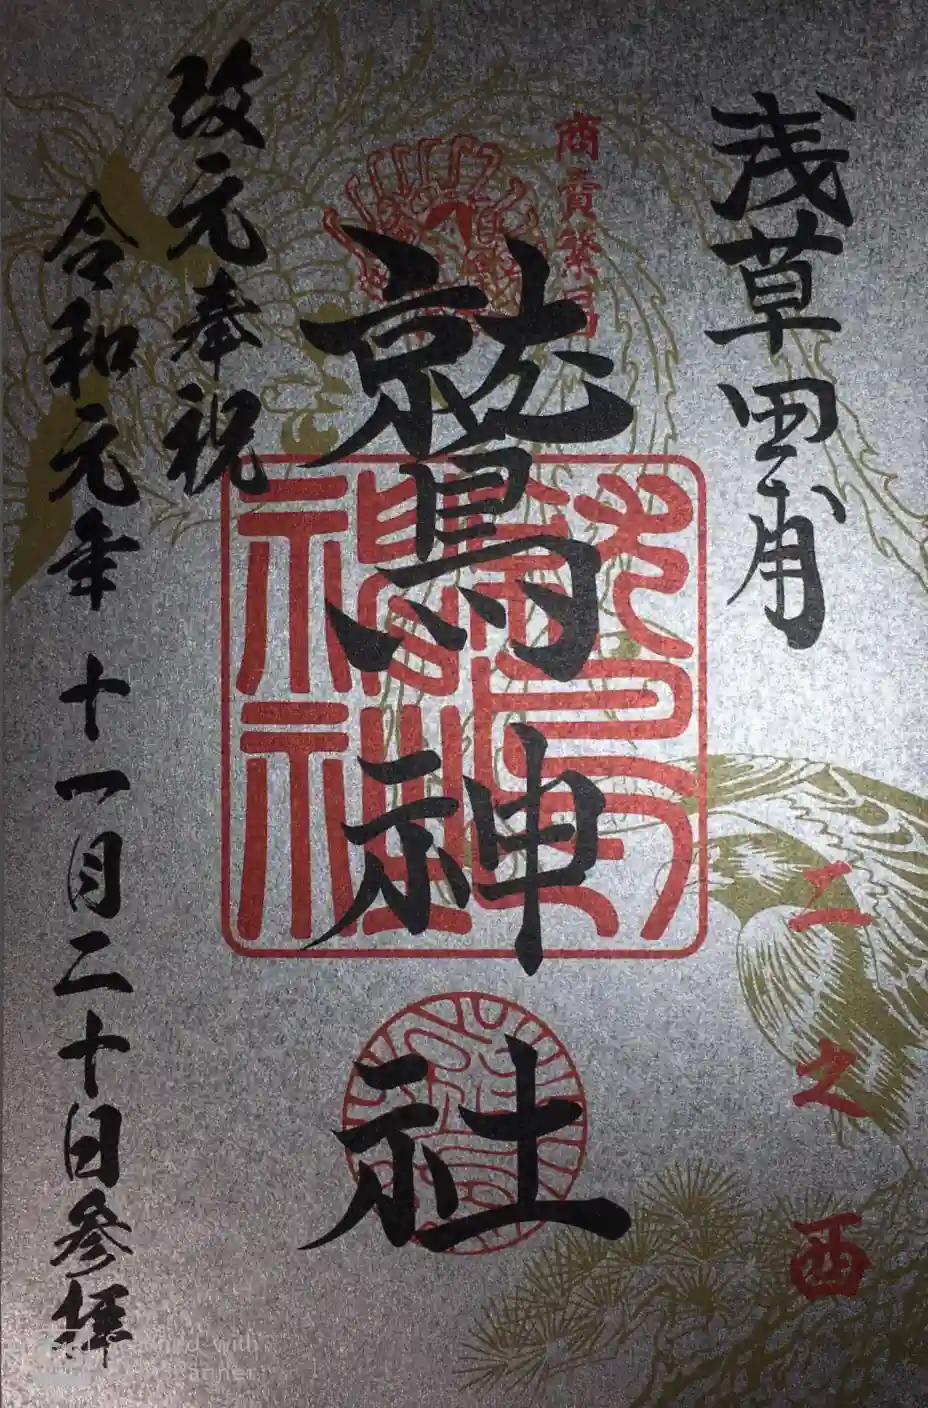 浅草田甫
二之酉
商賣繁昌
鷲神社
鷲神社
改元奉祝
令和元年十一月二十日参拝
with